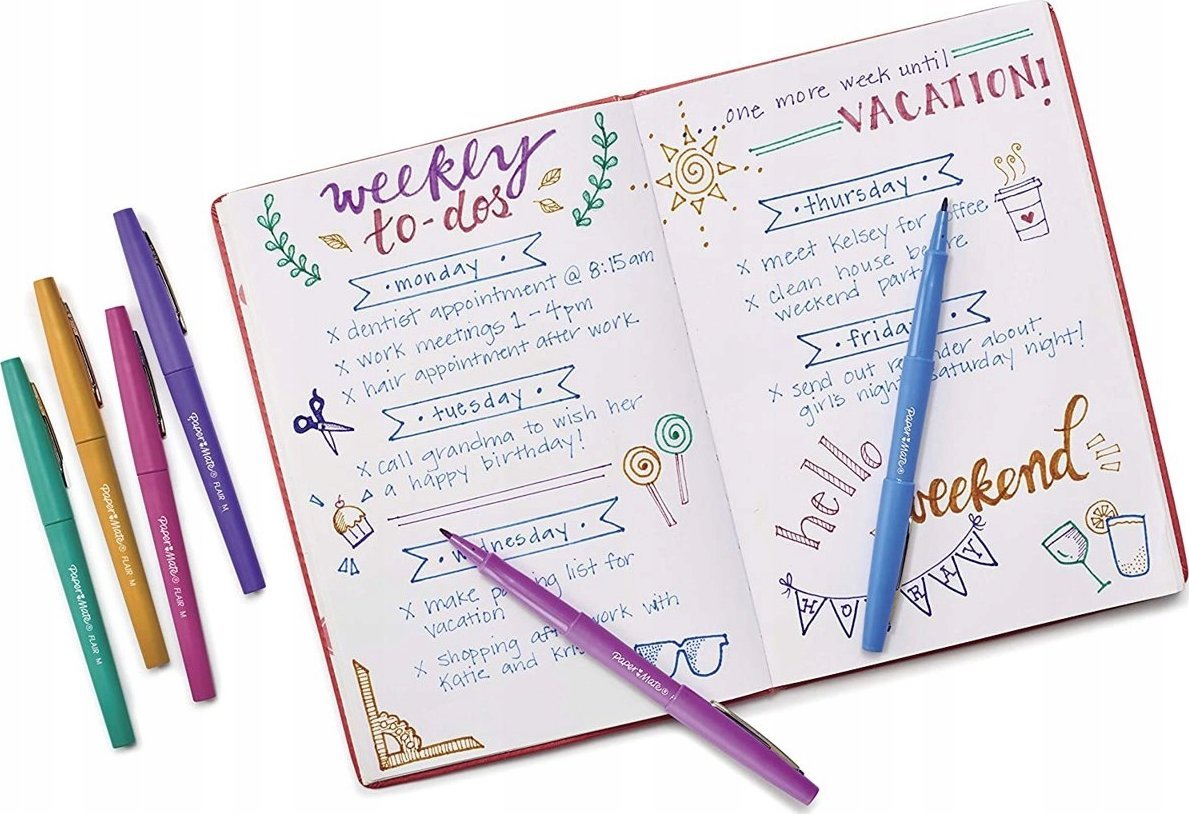 weekly
to-dos
monday
x dentist appointment @ 8:15am
x work meetings 1-4pm
x hair appointment after work
tuesday
x call grandma to wish her
a happy birthday!
wednesday
x make list for
vacation
x shopping work with
Katie and
...one more week until
VACATION!
thursday
x meet Kelsey for
x clean house
weekend
friday
x send out about
girl's night saturday night!
hello
weekend
HOORAY
Paper Mate® FLAIR M
Paper Mate® FLAIR M
Paper Mate® FLAIR M
Paper Mate® FLAIR M
Paper Mate®
Paper Mate®